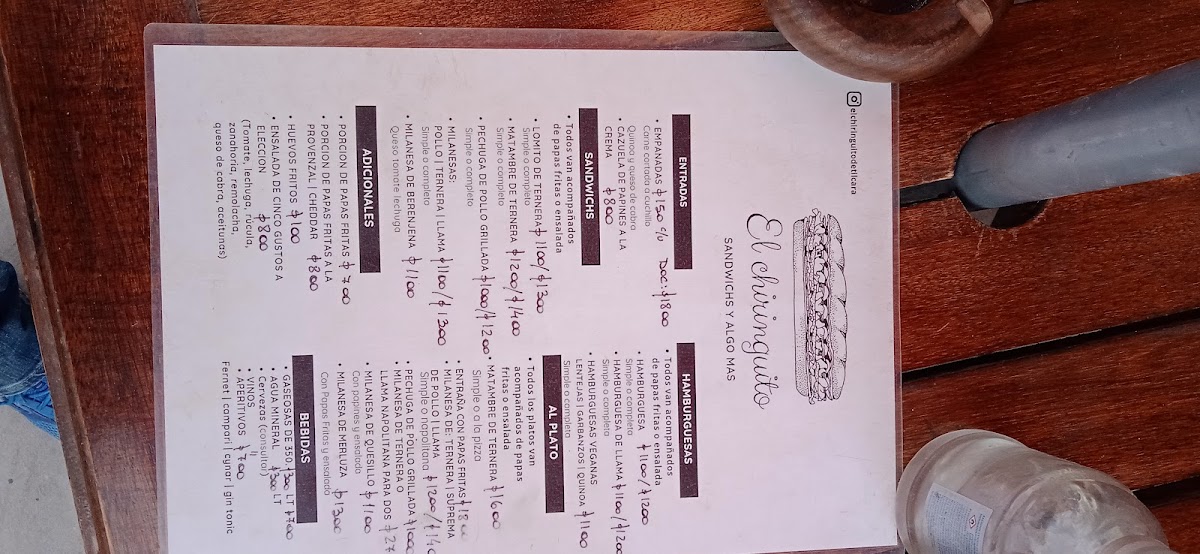 elchiringuitodetilcara
El chiringuito
SANDWICHS Y ALGO MAS
ENTRADAS
• EMPANADAS $150 c/u Doc: $1800
Carne cortada a cuchillo
Quinoa y queso de cabra
• CAZUELA DE PAPINES A LA
CREMA $800
SANDWICHS
• Todos van acompañados
de papas fritas o ensalada
• LOMITO DE TERNERA $1100/$1300
Simple o completo
• MATAMBRE DE TERNERA $1200/$1400
Simple o completo
• PECHUGA DE POLLO GRILLADA $1000/$1200
Simple o completo
• MILANESAS:
POLLO | TERNERA | LLAMA $1100/$1300
Simple o completo
• MILANESA DE BERENJENA $1100
Queso tomate lechuga
ADICIONALES
• PORCION DE PAPAS FRITAS $700
• PORCION DE PAPAS FRITAS A LA
PROVENZAL | CHEDDAR $800
• HUEVOS FRITOS $100
• ENSALADA DE CINCO GUSTOS A
ELECCION $800
(Tomate, lechuga, rúcula,
zanahoria, remolacha,
queso de cabra, aceitunas)
HAMBURGUESAS
• Todos van acompañados
de papas fritas o ensalada
• HAMBURGUESA $1100/$1200
Simple o completa
• HAMBURGUESA DE LLAMA $1100/$120
Simple o completa
• HAMBURGUESAS VEGANAS
LENTEJAS | GARBANZOS | QUINOA $1100
Simple o completa
AL PLATO
• Todos los platos van
acompañados de papas
fritas o ensalada
• MATAMBRE DE TERNERA $1600
Simple o a la pizza
• ENTRAÑA CON PAPAS FRITAS $180
• MILANESA DE: TERNERA | SUPREMA
DE POLLO | LLAMA
Simple o napolitana $1200/$140
• PECHUGA DE POLLO GRILLADA $1000
• MILANESA DE TERNERA O
LLAMA NAPOLITANA PARA DOS $27
• MILANESA DE QUESILLO $1100
Con papines y ensalada
• MILANESA DE MERLUZA $1300
Con Papas Fritas y ensalada
BEBIDAS
• GASEOSAS DE 350 $300 LT $700
• AGUA MINERAL $300 LT
• Cervezas (consultar)
• VINOS "
• APERITIVOS $700
Fernet | campari | cynar | gin tonic